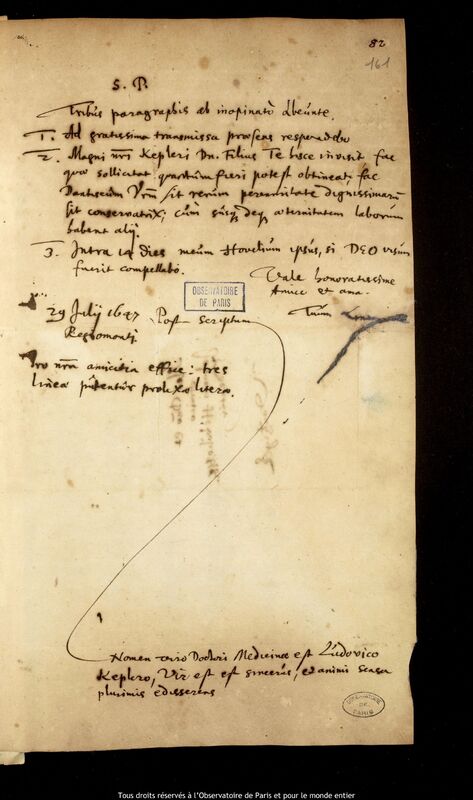 82
161
S. P.
Tribus paragraphis ab inopinatò abeunte.
1. Ad gratissima transmissa praesens respondebo
2. Magni nri Kepleri Dn. Filius Te hisce invisit fac
quae sollicitat, quantum fieri potest obtineat, fac
Dantiscum Vrm sit rerum perennitate dignissimarum
sit conservatrix, cùm susq deq aeternitatem laborum
habent alij.
3. Intra dies meum Hevelium ipsus, si DEO visum
fuerit compellabo.
Vale honoratissime
Amice et ama.
Tuum
OBSERVATOIRE
DE PARIS
29 Julij 1647
Regiomonti
Post Scriptum
Pro nrâ amicitia effice: tres
lineae putentur prolixae literae.
Nomen vero Doctori Medicinae est Ludovico
Keplero, Vir est sincerus, et animi sensa
plurimis edisserens
OBSERVATOIRE
DE
PARIS
Tous droits réservés à l'Observatoire de Paris et pour le monde entier